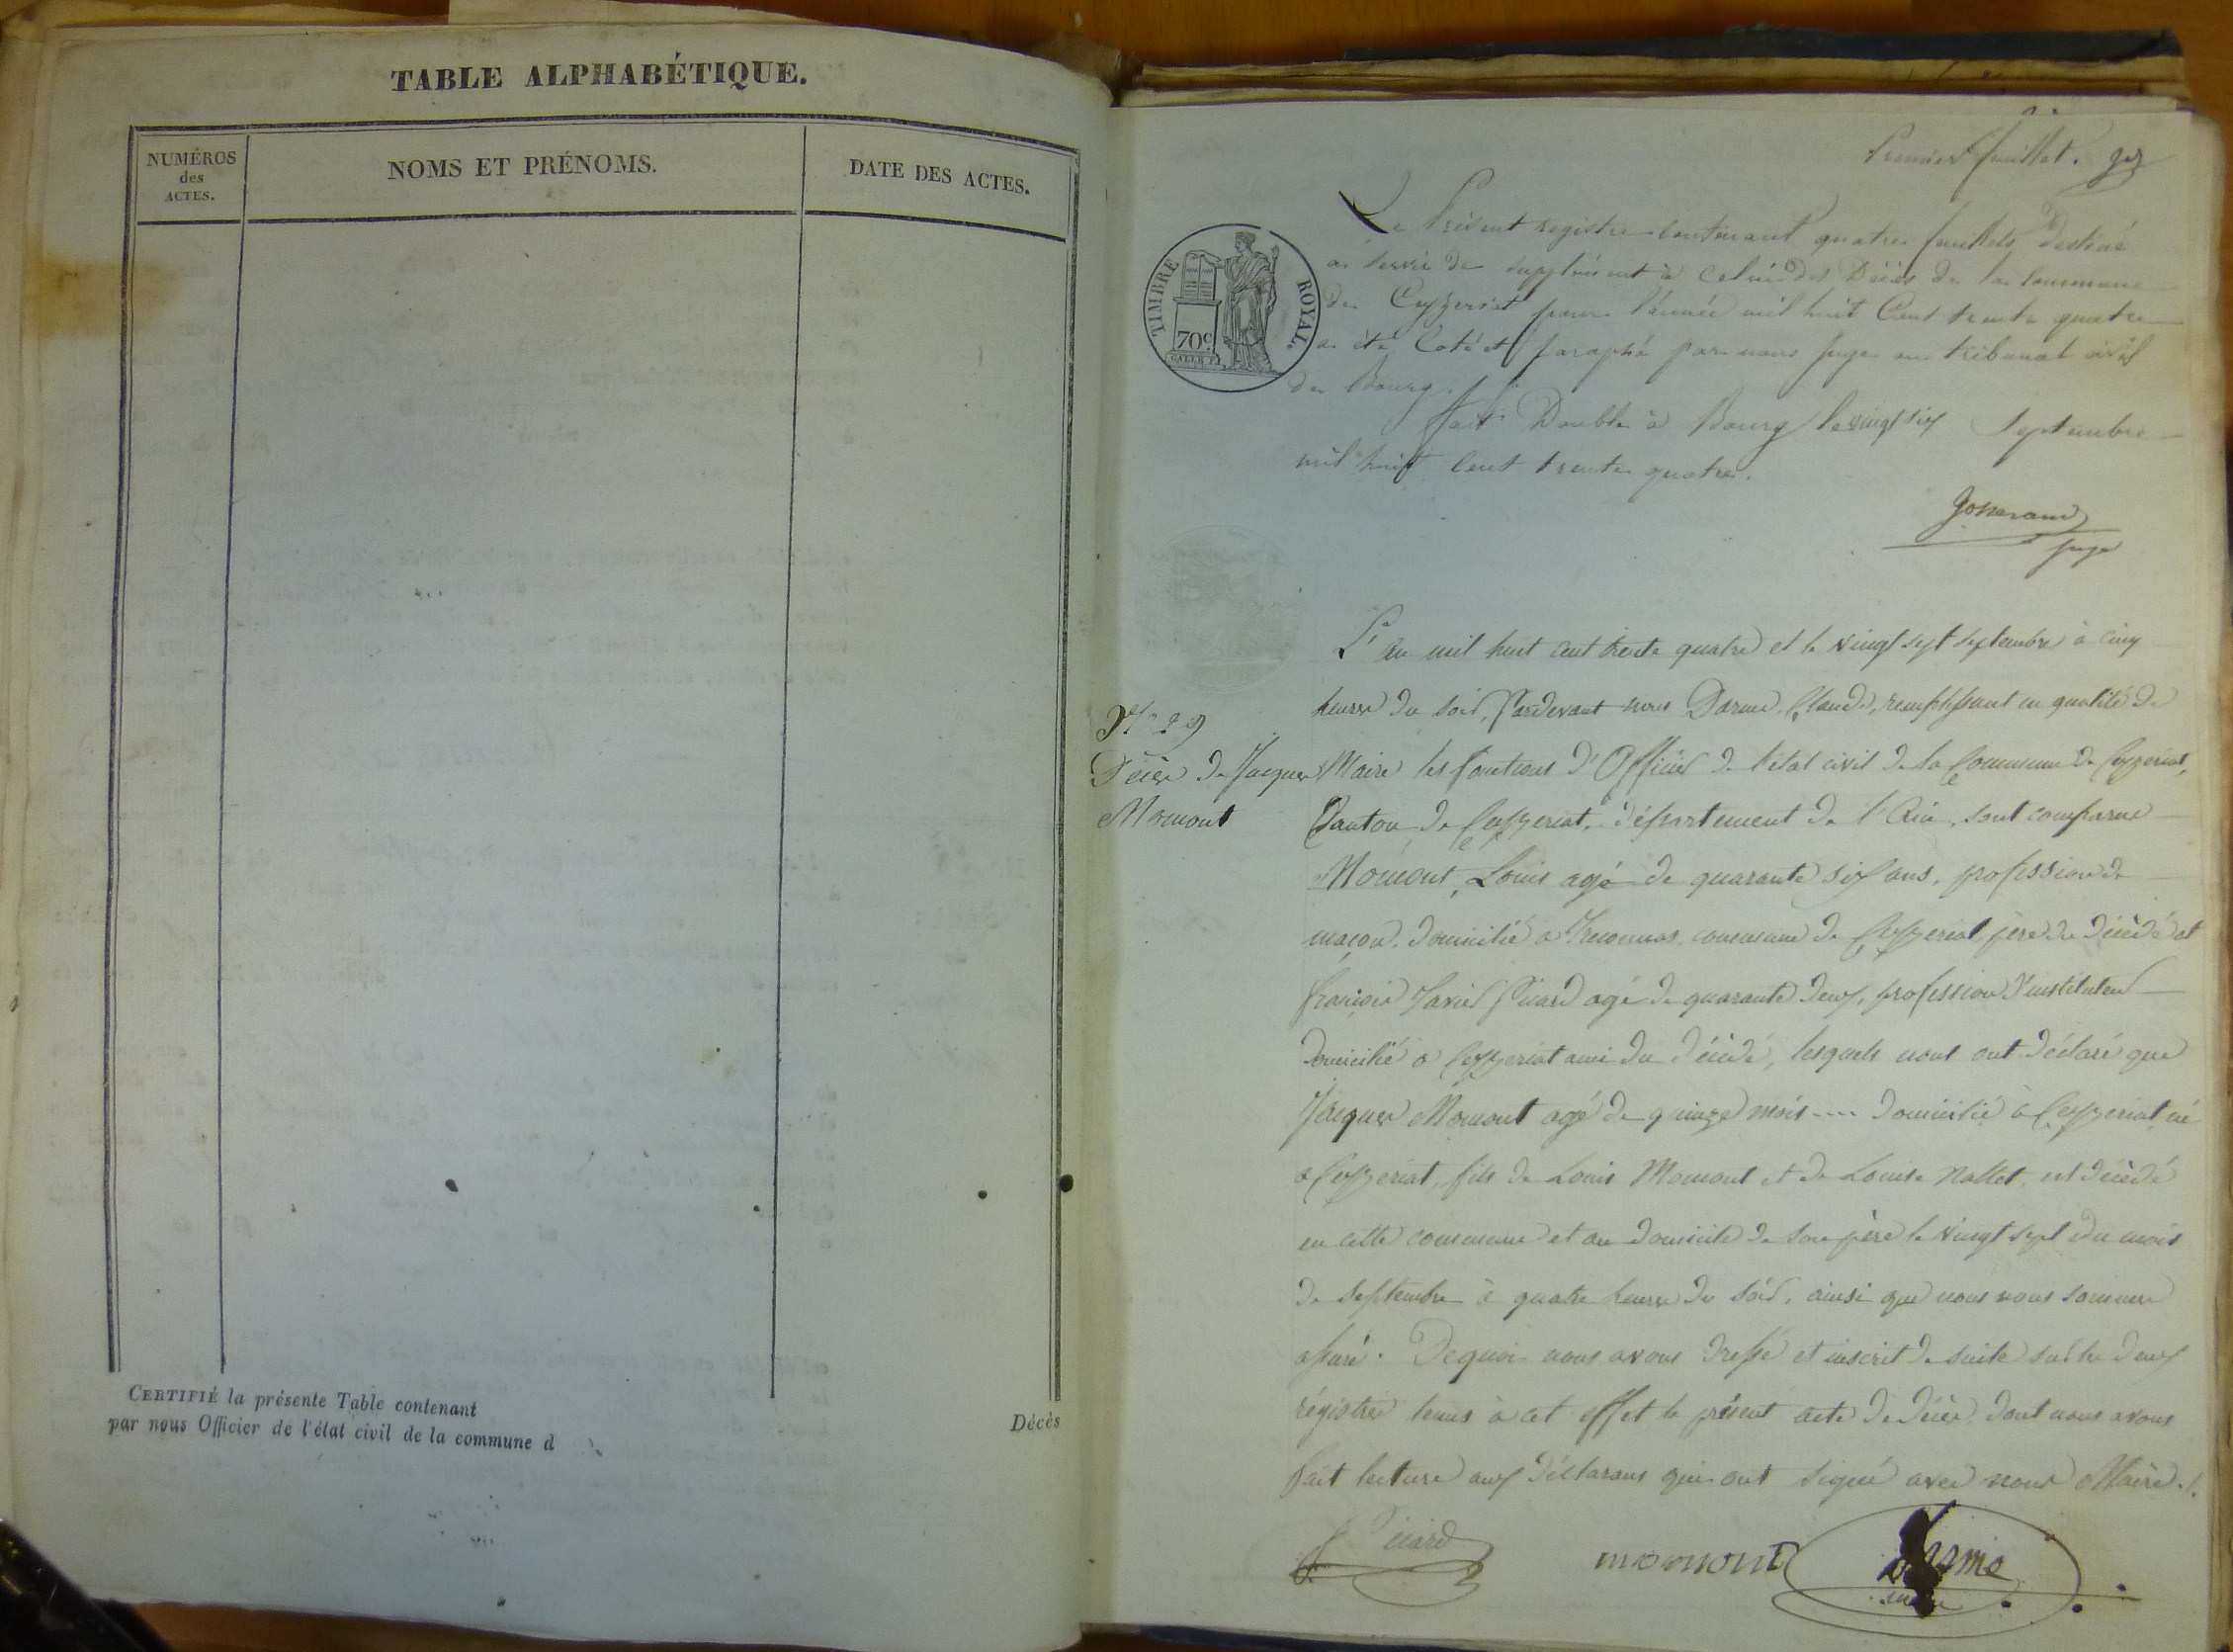 TABLE ALPHABÉTIQUE.
NUMÉROS
des
ACTES.
NOMS ET PRÉNOMS.
DATE DES ACTES.
CERTIFIÉ la présente Table contenant
Décès
par nous Officier de l'état civil de la commune d
Premier feuillet.
TIMBRE ROYAL.
70c.
Le Présent registre contenant quatre feuillets Destiné
à servir de supplément à celui des Décès de la commune
de Ceyzeriat pour l'année mil huit Cent trente quatre
a été Coté et paraphé par nous Juge au tribunal civil
de Bourg.
fait Double à Bourg le vingt six Septembre
mil huit Cent trente quatre.
Josserand
juge
L'an mil huit cent trente quatre et le vingt sept septembre à cinq
heures du soir, Pardevant nous Darme Claude, remplissant en qualité de
N° 29
Décès de Jacques
Momont
Maire les fonctions d'Officier de l'état civil de la Commune de Ceyzeriat,
Canton de Ceyzeriat, département de l'Ain, sont comparus
Momont, Louis agé de quarante six ans, profession de
maçon, domicilié a Treconnas, commune de Ceyzeriat, père du décédé et
françois Xavier Picard agé de quarante deux, profession d'instituteur
Domicilié a Ceyzeriat ami du décédé, lesquels nous ont déclaré que
Jacques Momont agé de quinze mois .... domicilié à Ceyzeriat, né
a Ceyzeriat, fils de Louis Momont et de Louise Nallet, est décédé
en cette commune et au domicile de son père le vingt sept du mois
de septembre à quatre heures du soir, ainsi que nous nous sommes
assuré. De quoi nous avons dressé et inscrit de suite sur les deux
régistres tenus à cet effet le présent acte de Décès, dont nous avons
fait lecture aux déclarans qui ont signé avec nous Maire ./.
Picard
momont
Darme
maire